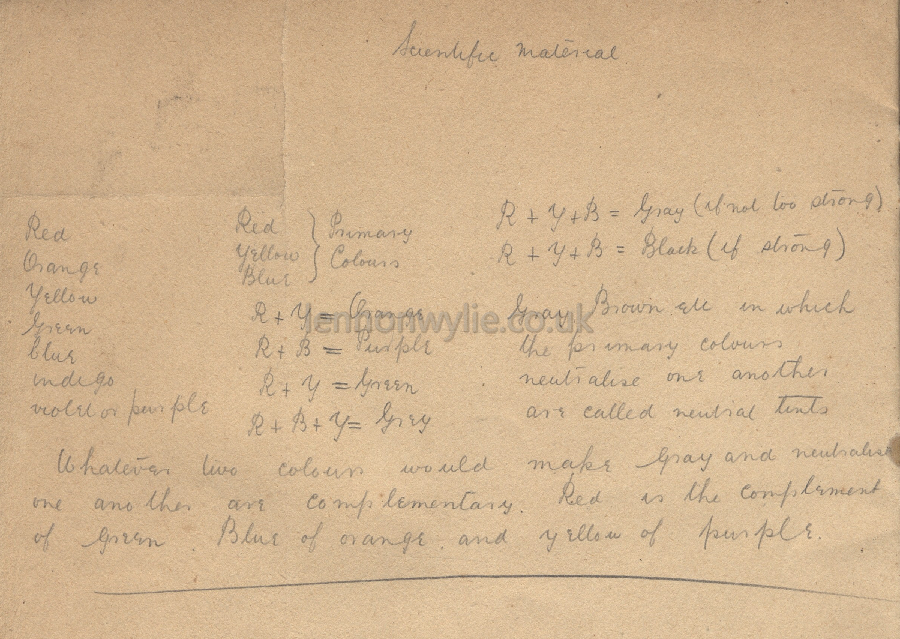 Scientific Material
Red
Orange
Yellow
Green
blue
indigo
violet or purple
Red
Yellow
Blue
Primary
Colours
R + Y = Orange
R + B = Purple
R + Y = Green
R + B + Y = Grey
R + Y + B = Gray (if not too strong)
R + Y + B = Black (if strong)
Gray Brown etc in which
the primary colours
neutralise one another
are called neutral tints
Whatever two colours would make Gray and neutralise
one another are complementary. Red is the complement
of Green Blue of orange and yellow of purple.
lennonwylie.co.uk